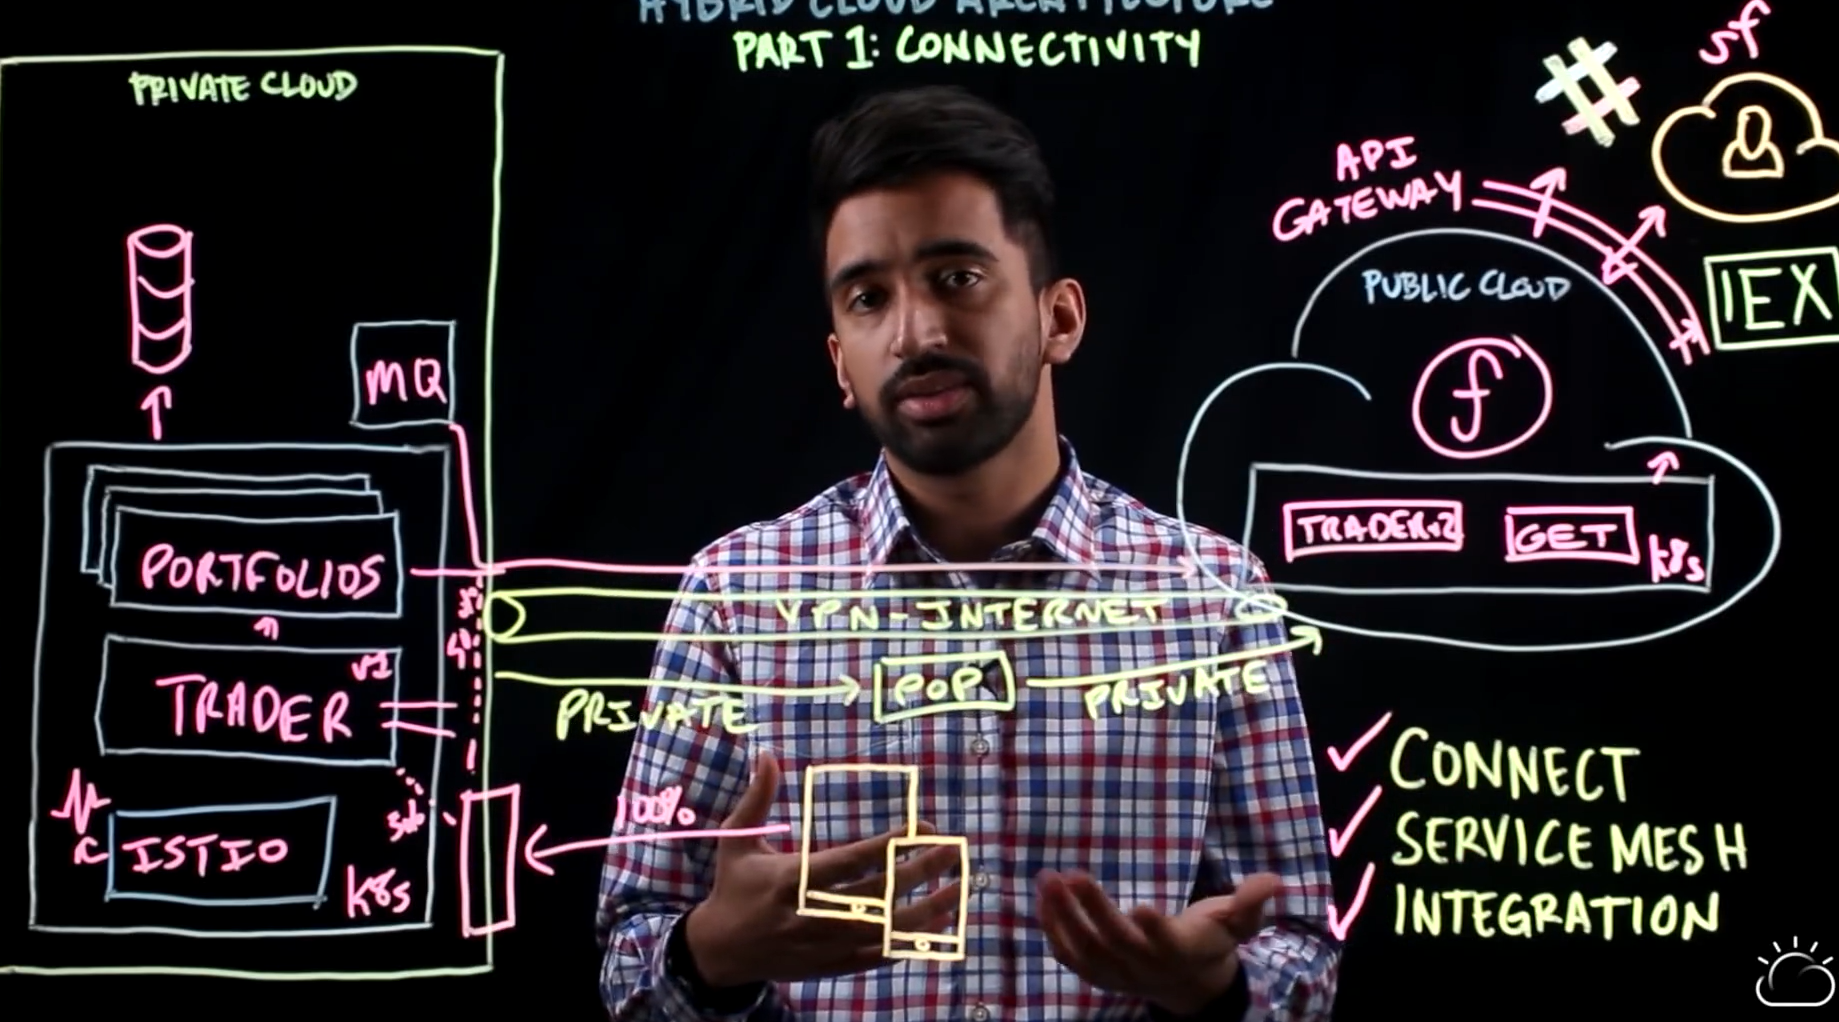 HYBRID CLOUD ARCHITECTURE
PART 1: CONNECTIVITY
PRIVATE CLOUD
MQ
PORTFOLIOS
TRADER v1
ISTIO
k8s
VPN-INTERNET
PRIVATE
POP
PRIVATE
100%
API
GATEWAY
sf
IEX
PUBLIC CLOUD
f
TRADER v2
GET
k8s
CONNECT
SERVICE MESH
INTEGRATION